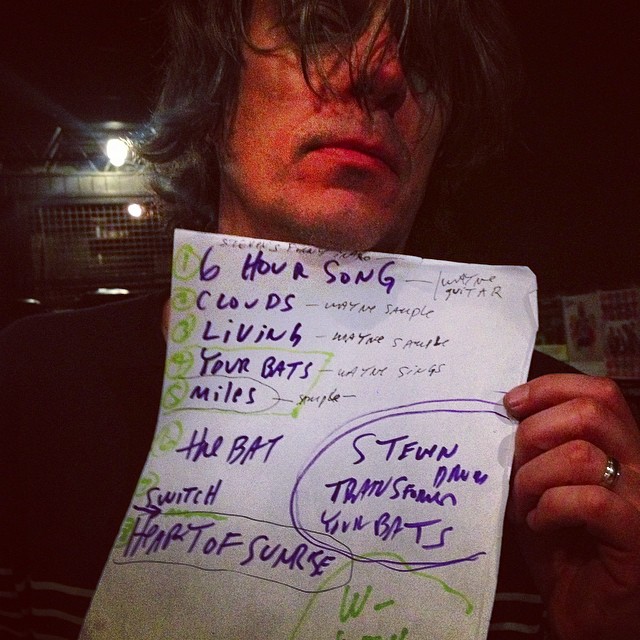 6 HOUR SONG — WAYNE GUITAR
CLOUDS — WAYNE SAMPLE
LIVING — WAYNE SAMPLE
YOUR BATS — WAYNE SINGS
MILES — SAMPLE —
THE BAT
SWITCH
HEART OF SUNRISE
STEVEN
DRUMS
TRANSFORM
YOUR BATS
W-